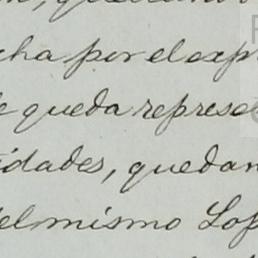 cha por el exp
queda represe
idades, quedan
del mismo Lop